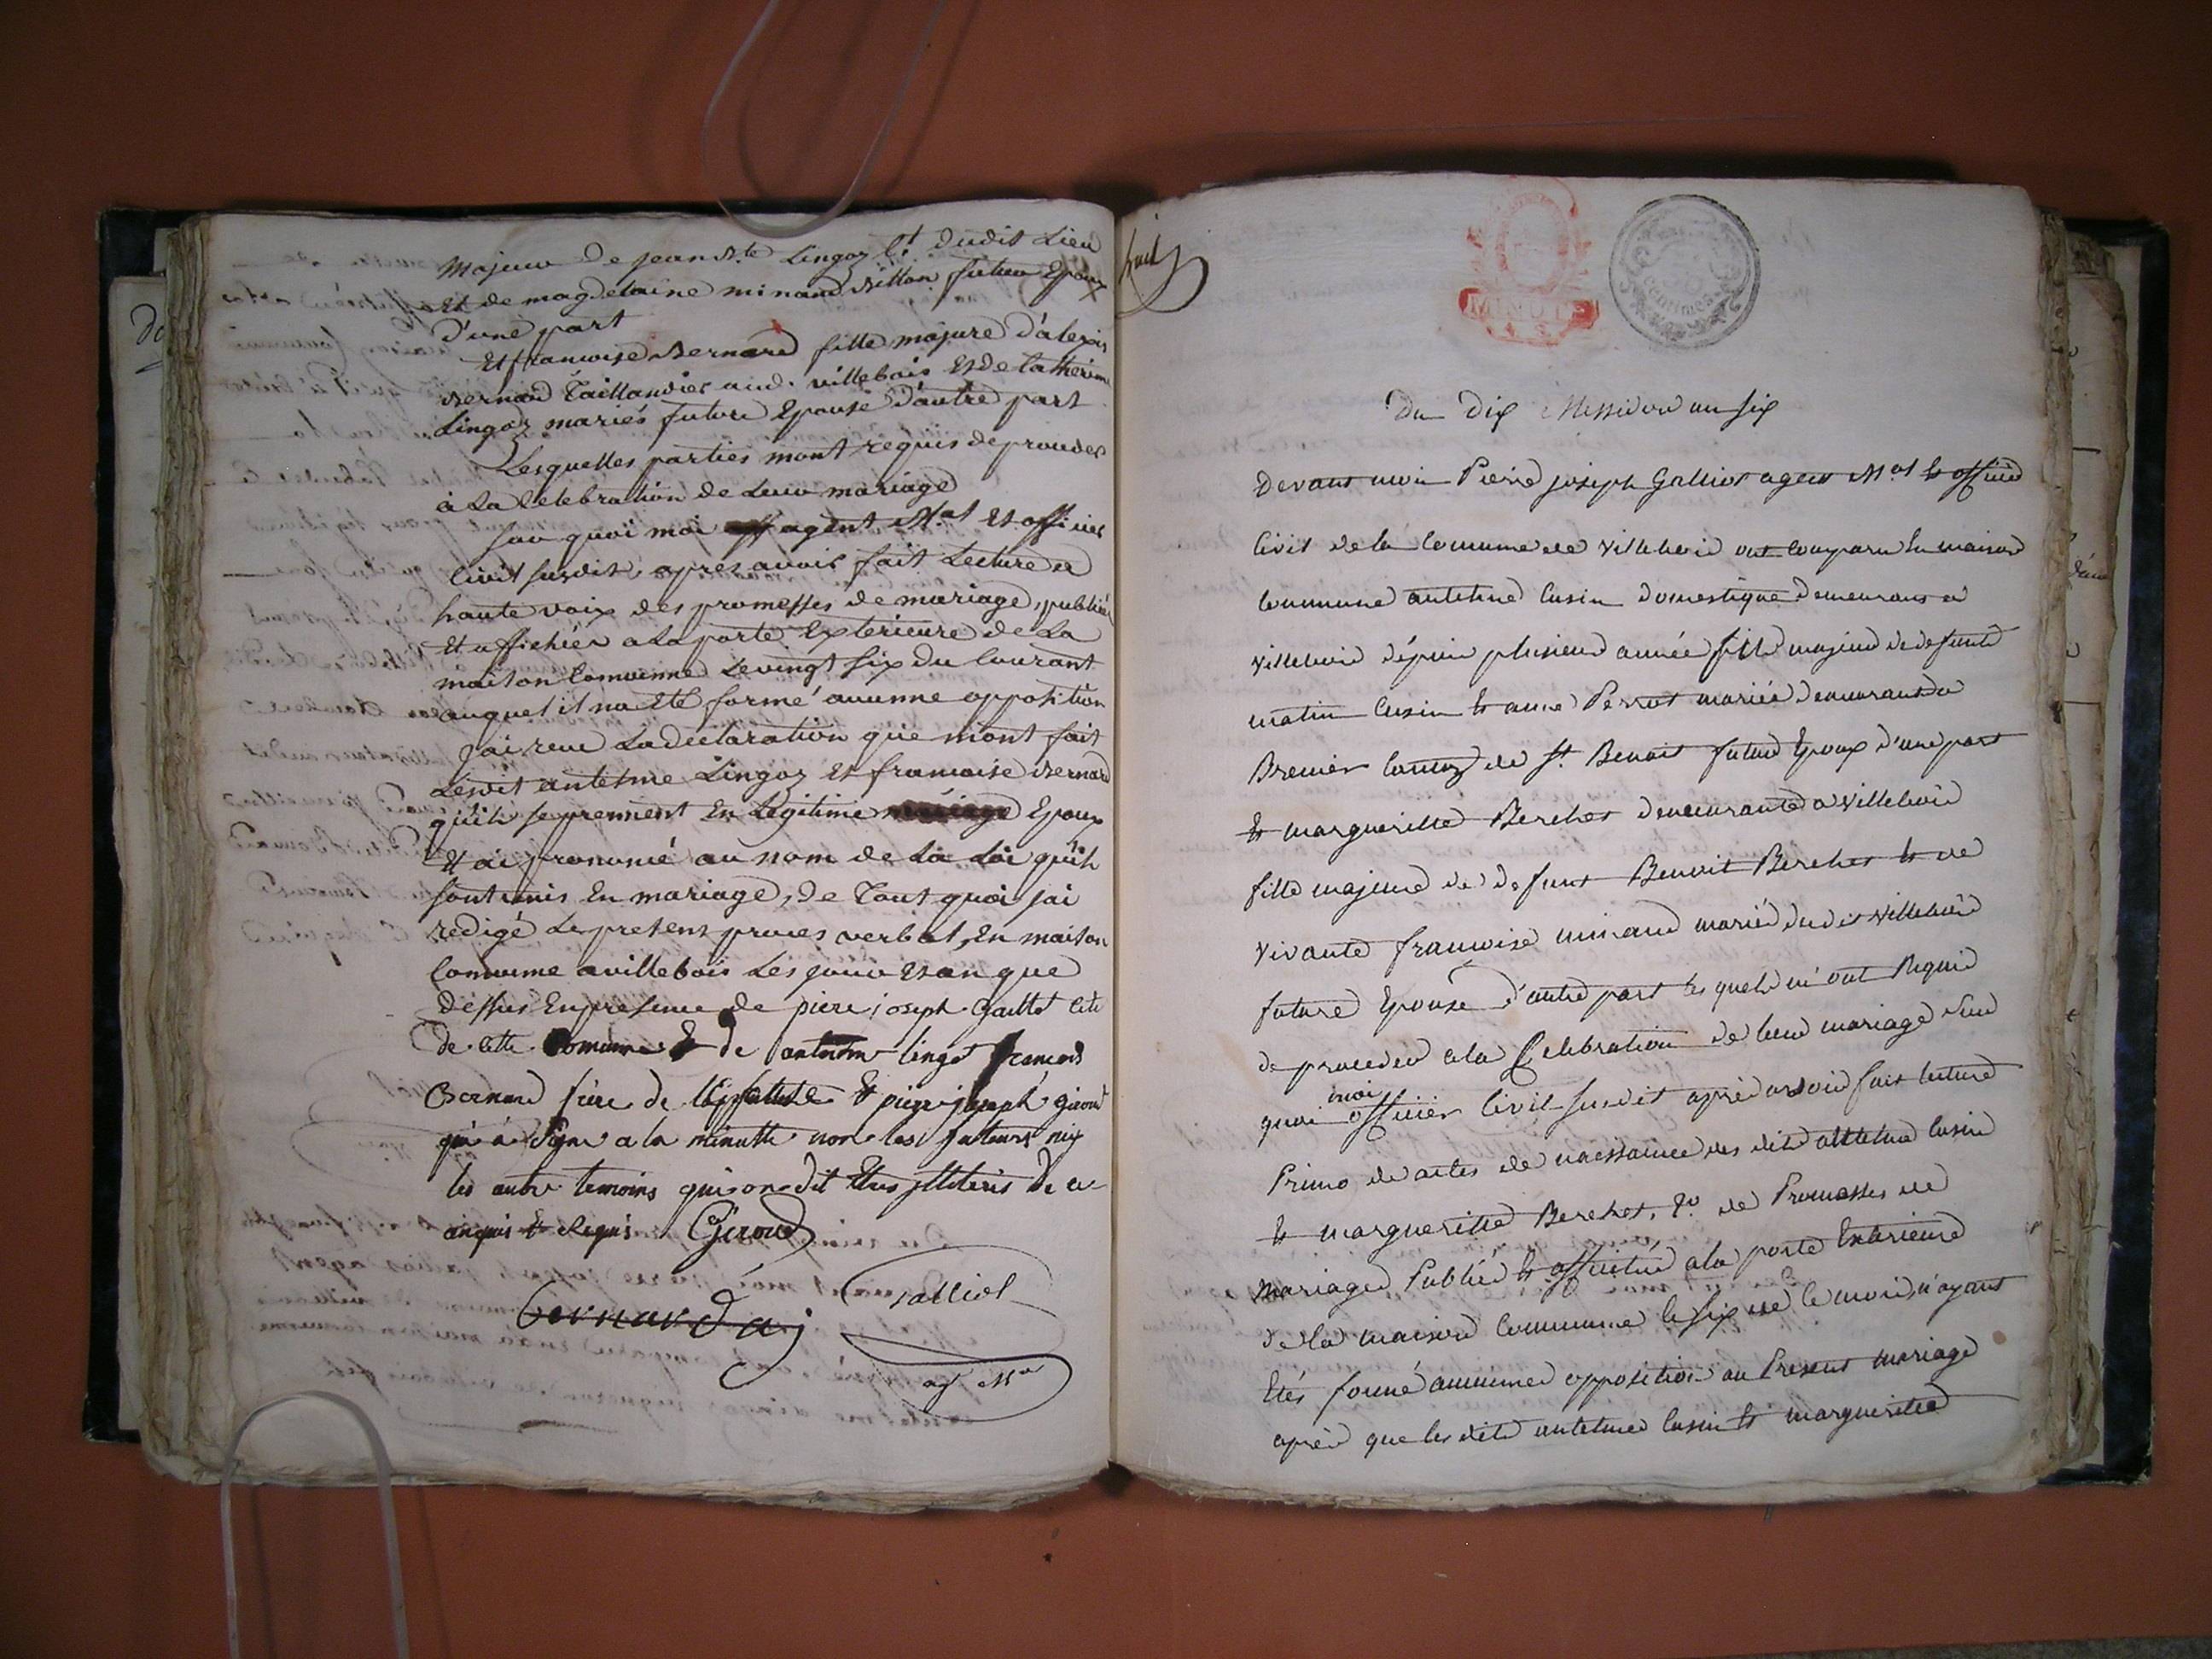 majeur de jean B.te Lingoz C.t dudit Lieu
et de magdelaine minand Billon futeur Epoux
D'une part
Et francoise Bernard fille majure d'alexis
Bernard Taillandier aud. villebois Et de Catherine
Lingoz mariés future Epouse D'autre part
Lesquelles parties mont requis de proceder
à La Celebration de Leur mariage
Sur quoi moi agent M.al Et officier
Civil susdit, apres avoir fait Lecture a
haute voix des promesses de mariage, publiées
Et affichées a La porte Exterieure de La
maison Commune Le vingt six du Courant
auquel il na Eté formé aucunne opposition
Jai recu La declaration que mont fait
Lesdit antelme Lingoz Et francoise Bernard
qu'ils se prennent En Legitime mariage Epoux
Et ai prononcé au nom de La Loi qu'ils
sont unis En mariage, de Tout quoi jai
redigé Le present proces verbal, En maison
Commune a villebois Les jour Et an que
dessus En presence de piere joseph
de cette Comune Et de antelme lingot francois
Bernard frere de Et piere joseph giroud
qui a signé a la minutte non les futeurs nix
les autre temoins qui on dit Etre illiteris de ce
enquis Et Requis Giroud
Bernard aj Galliot
ag M.al
huit
Du Dix Messidor an six
Devant moi Pierre joseph Galliot agent M.al Et officier
Civil de la Commune de villebois ont Comparu En maison
Commune antelme Cusin Domestique Demeurant a
villebois dépuis plusieurs année fils majeur de defunt
matin Cusin Et anne Perrot mariés Demeurant a
Bremier Canton de St. Benoit futur Epoux d'une part
Et margueritte Berchet demeurante a Villebois
fille majeure de defunt Benoit Berchet Et de
vivante francoise minand mariés dudit villebois
future Epouse d'autre part les quels m'ont Requis
de proceder a la Celebration de leur mariage Sur
quoi moi officier Civil susdit après avoir fait lecture
Primo de actes de naissance des dits antelme Cusin
Et margueritte Berchet, 2o de Promesses de
mariages Publiés Et affichés a la porte Exterieure
de la maison Commune le six de le mois n'ayant
Etés formé aucunne opposition au Present mariage
après que les dits antelme Cusin Et margueritte
MINUTE
A. S.
centimes